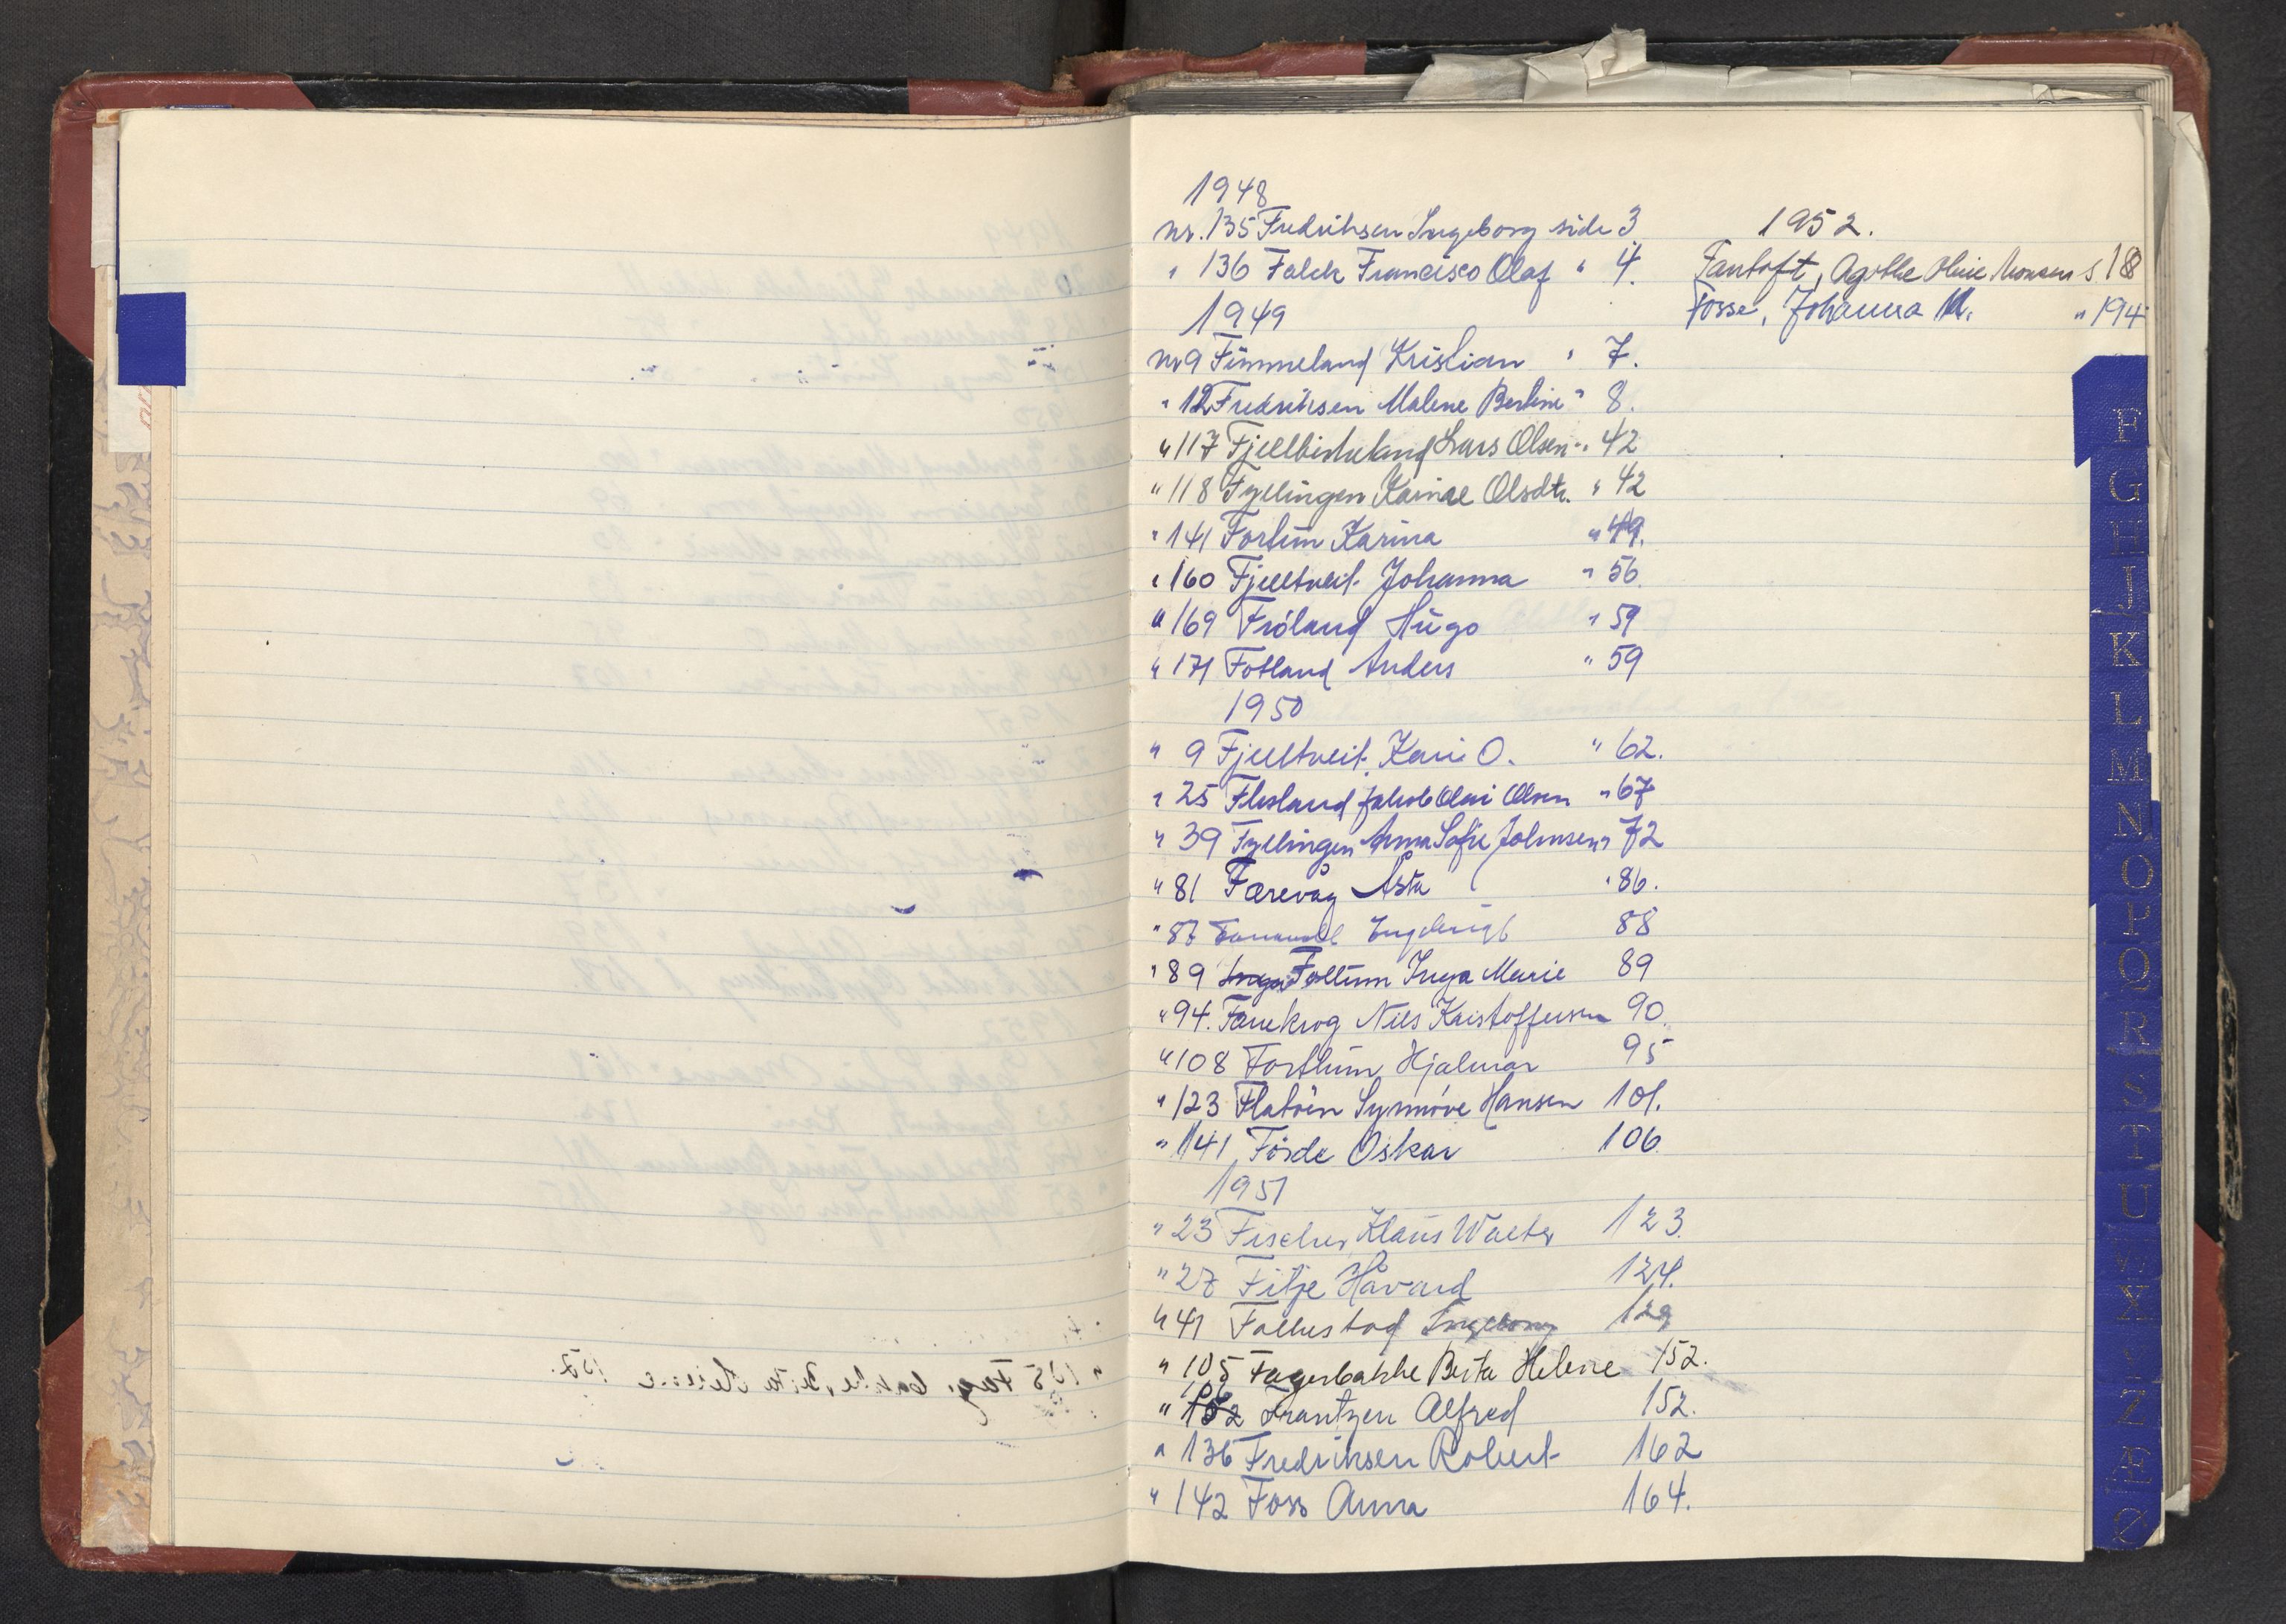 1948
nr. 135 Fredriksen Ingeborg side 3
" 136 Falck Francisco Olaf " 4.
1949
nr 9 Fimmeland Kristian " 7.
" 12 Fredriksen Malene Bertine " 8.
" 117 Fjellbirkeland Lars Olsen " 42
" 118 Fyllingen Olsdtr. " 42
" 141 Fortun Karina " 49.
" 160 Fjeltveit Johanna " 56.
" 169 Fröland Hugo " 59
" 171 Fotland Anders " 59
1950
" 9 Fjeltveit Kari O. " 62.
" 25 Flesland Jakob Olai Olsen " 67
" 39 Fyllingen Anna Sofie Johnsen " 72
" 81 Færevåg Asta " 86.
" 87 88
" 89 Inga Foltun Inga Marie 89
" 94. Fanekrog Nils Kristoffersen 90.
" 108 Forthun Hjalmar 95
" 123 Flatöen Synnöve Hansen 101.
" 141 Förde Oskar 106.
1951
" 23 Fischer Klaus Walter 123.
" 27 Fitje Håvard 124.
" 41 Follestad Ingeborg 129
" 105 Fagerbakke Berta Helene 152.
" 106 Frantzen Alfred 152.
" 136 Fredriksen Robert 162
" 142 Foss Anna 164.
1952.
Fantoft, Agathe Oline Monsen s 18
Fosse, Johanna M. " 194
F
G
H
I J
K
L
M
N
O
P
Q
R
S
T
U
V
W
X Y
Z
Æ
Ø